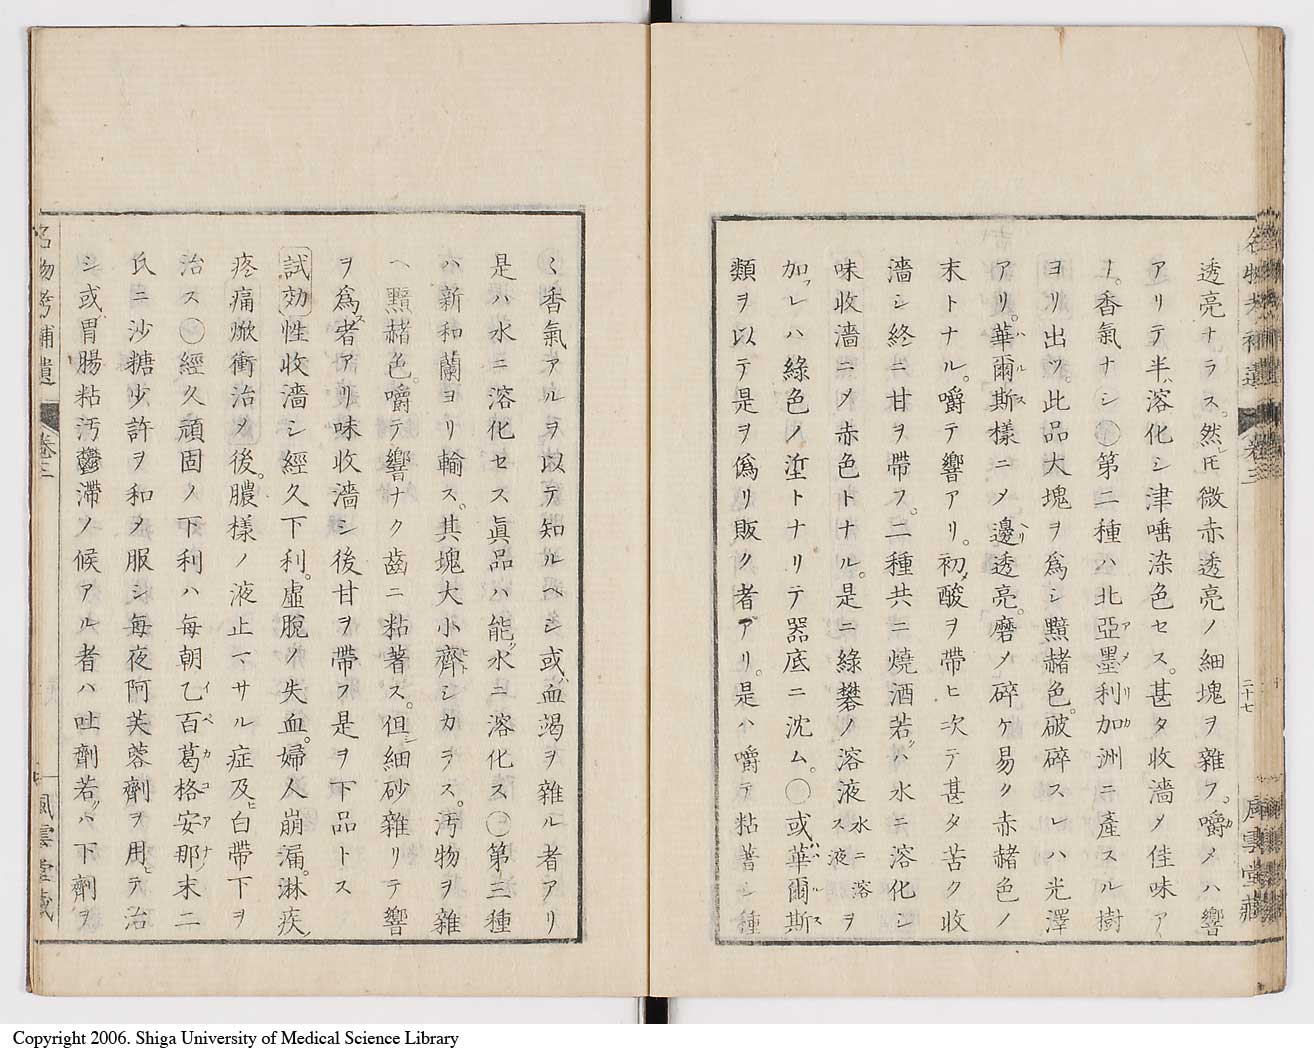 透亮ナラス。然𪜈微赤透亮ノ細塊ヲ雜フ。嚼メハ響
アリテ半ハ溶化シ津唾染色セス。甚タ收濇メ佳味ア
リ。香氣ナシ○第二種ハ北亞墨利加洲ニ產スル樹
ヨリ出ツ。此品大塊ヲ爲シ黯赭色。破碎スレハ光澤
アリ。華爾斯樣ニメ邊透亮。磨メ碎ケ易ク赤赭色ノ
末トナル。嚼テ響アリ。初メ酸ヲ帶ヒ次テ甚タ苦ク收
濇シ終ニ甘ヲ帶フ。二種共ニ燒酒若クハ水ニ溶化シ
味收濇ニメ赤色トナル。是ニ綠礬ノ溶液水ニ溶ス液ヲ
加フレハ綠色ノ埿トナリテ器底ニ沈ム。○或ハ華爾斯
類ヲ以テ是ヲ僞リ販ク者アリ。是ハ嚼テ粘著シ種
〻香氣アルヲ以テ知ルヘシ或ハ血竭ヲ雜ル者アリ
是ハ水ニ溶化セス眞品ハ能ク水ニ溶化ス○第三種
ハ新和蘭ヨリ輸ス。其塊大小齊シカラス。汚物ヲ雜
ヘ黯赭色。嚼テ響ナク齒ニ粘著ス。但シ細砂雜リテ響
ヲ爲ス者アリ味收濇シ後甘ヲ帶フ是ヲ下品トス
試効 性收濇シ經久下利。虛脫ノ失血。婦人崩漏。淋疾ノ
疼痛焮衝治メ後。膿樣ノ液止マサル症及ヒ白帶下ヲ
治ス○經久頑固ノ下利ハ每朝乙百葛格安那末二
氏ニ沙糖少許ヲ和メ服シ每夜阿芙蓉劑ヲ用ヒテ治
シ或ハ胃腸粘汚鬱滯ノ候アル者ハ吐劑若クハ下劑ヲ
名物考補遺 卷三
二十七
風雲堂藏
Copyright 2006. Shiga University of Medical Science Library